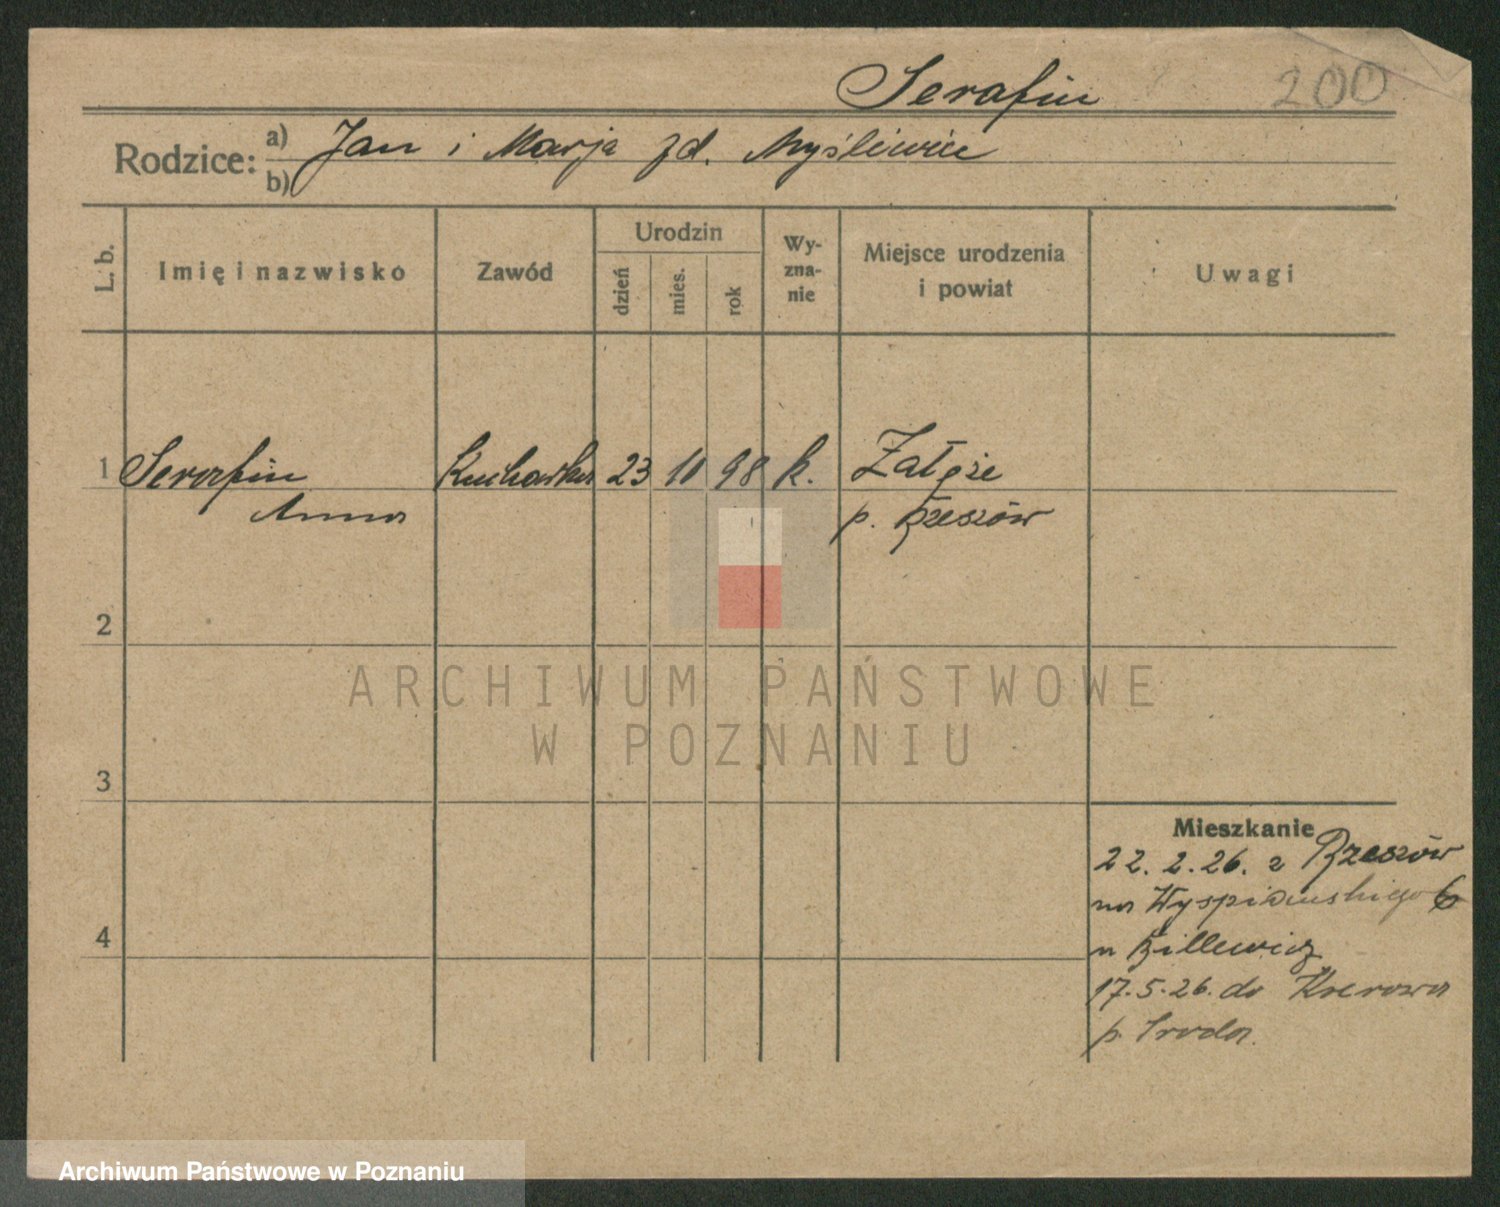 Serafin 200
Rodzice: a) Jan i Marja zd. Myśliwiec
b)
L. b. Imię i nazwisko Zawód Urodzin dzień mies. rok Wy-zna-nie Miejsce urodzenia i powiat Uwagi
1 Serafin Kucharka 23 10 98 k. Załęże
Anna p. Rzeszów
2
ARCHIWUM PAŃSTWOWE
W POZNANIU
3
Mieszkanie
22.2.26. z Rzeszów
na Wyspiańskiego 6
u Billewicz
4
17.5.26. do
p. Środa.
Archiwum Państwowe w Poznaniu